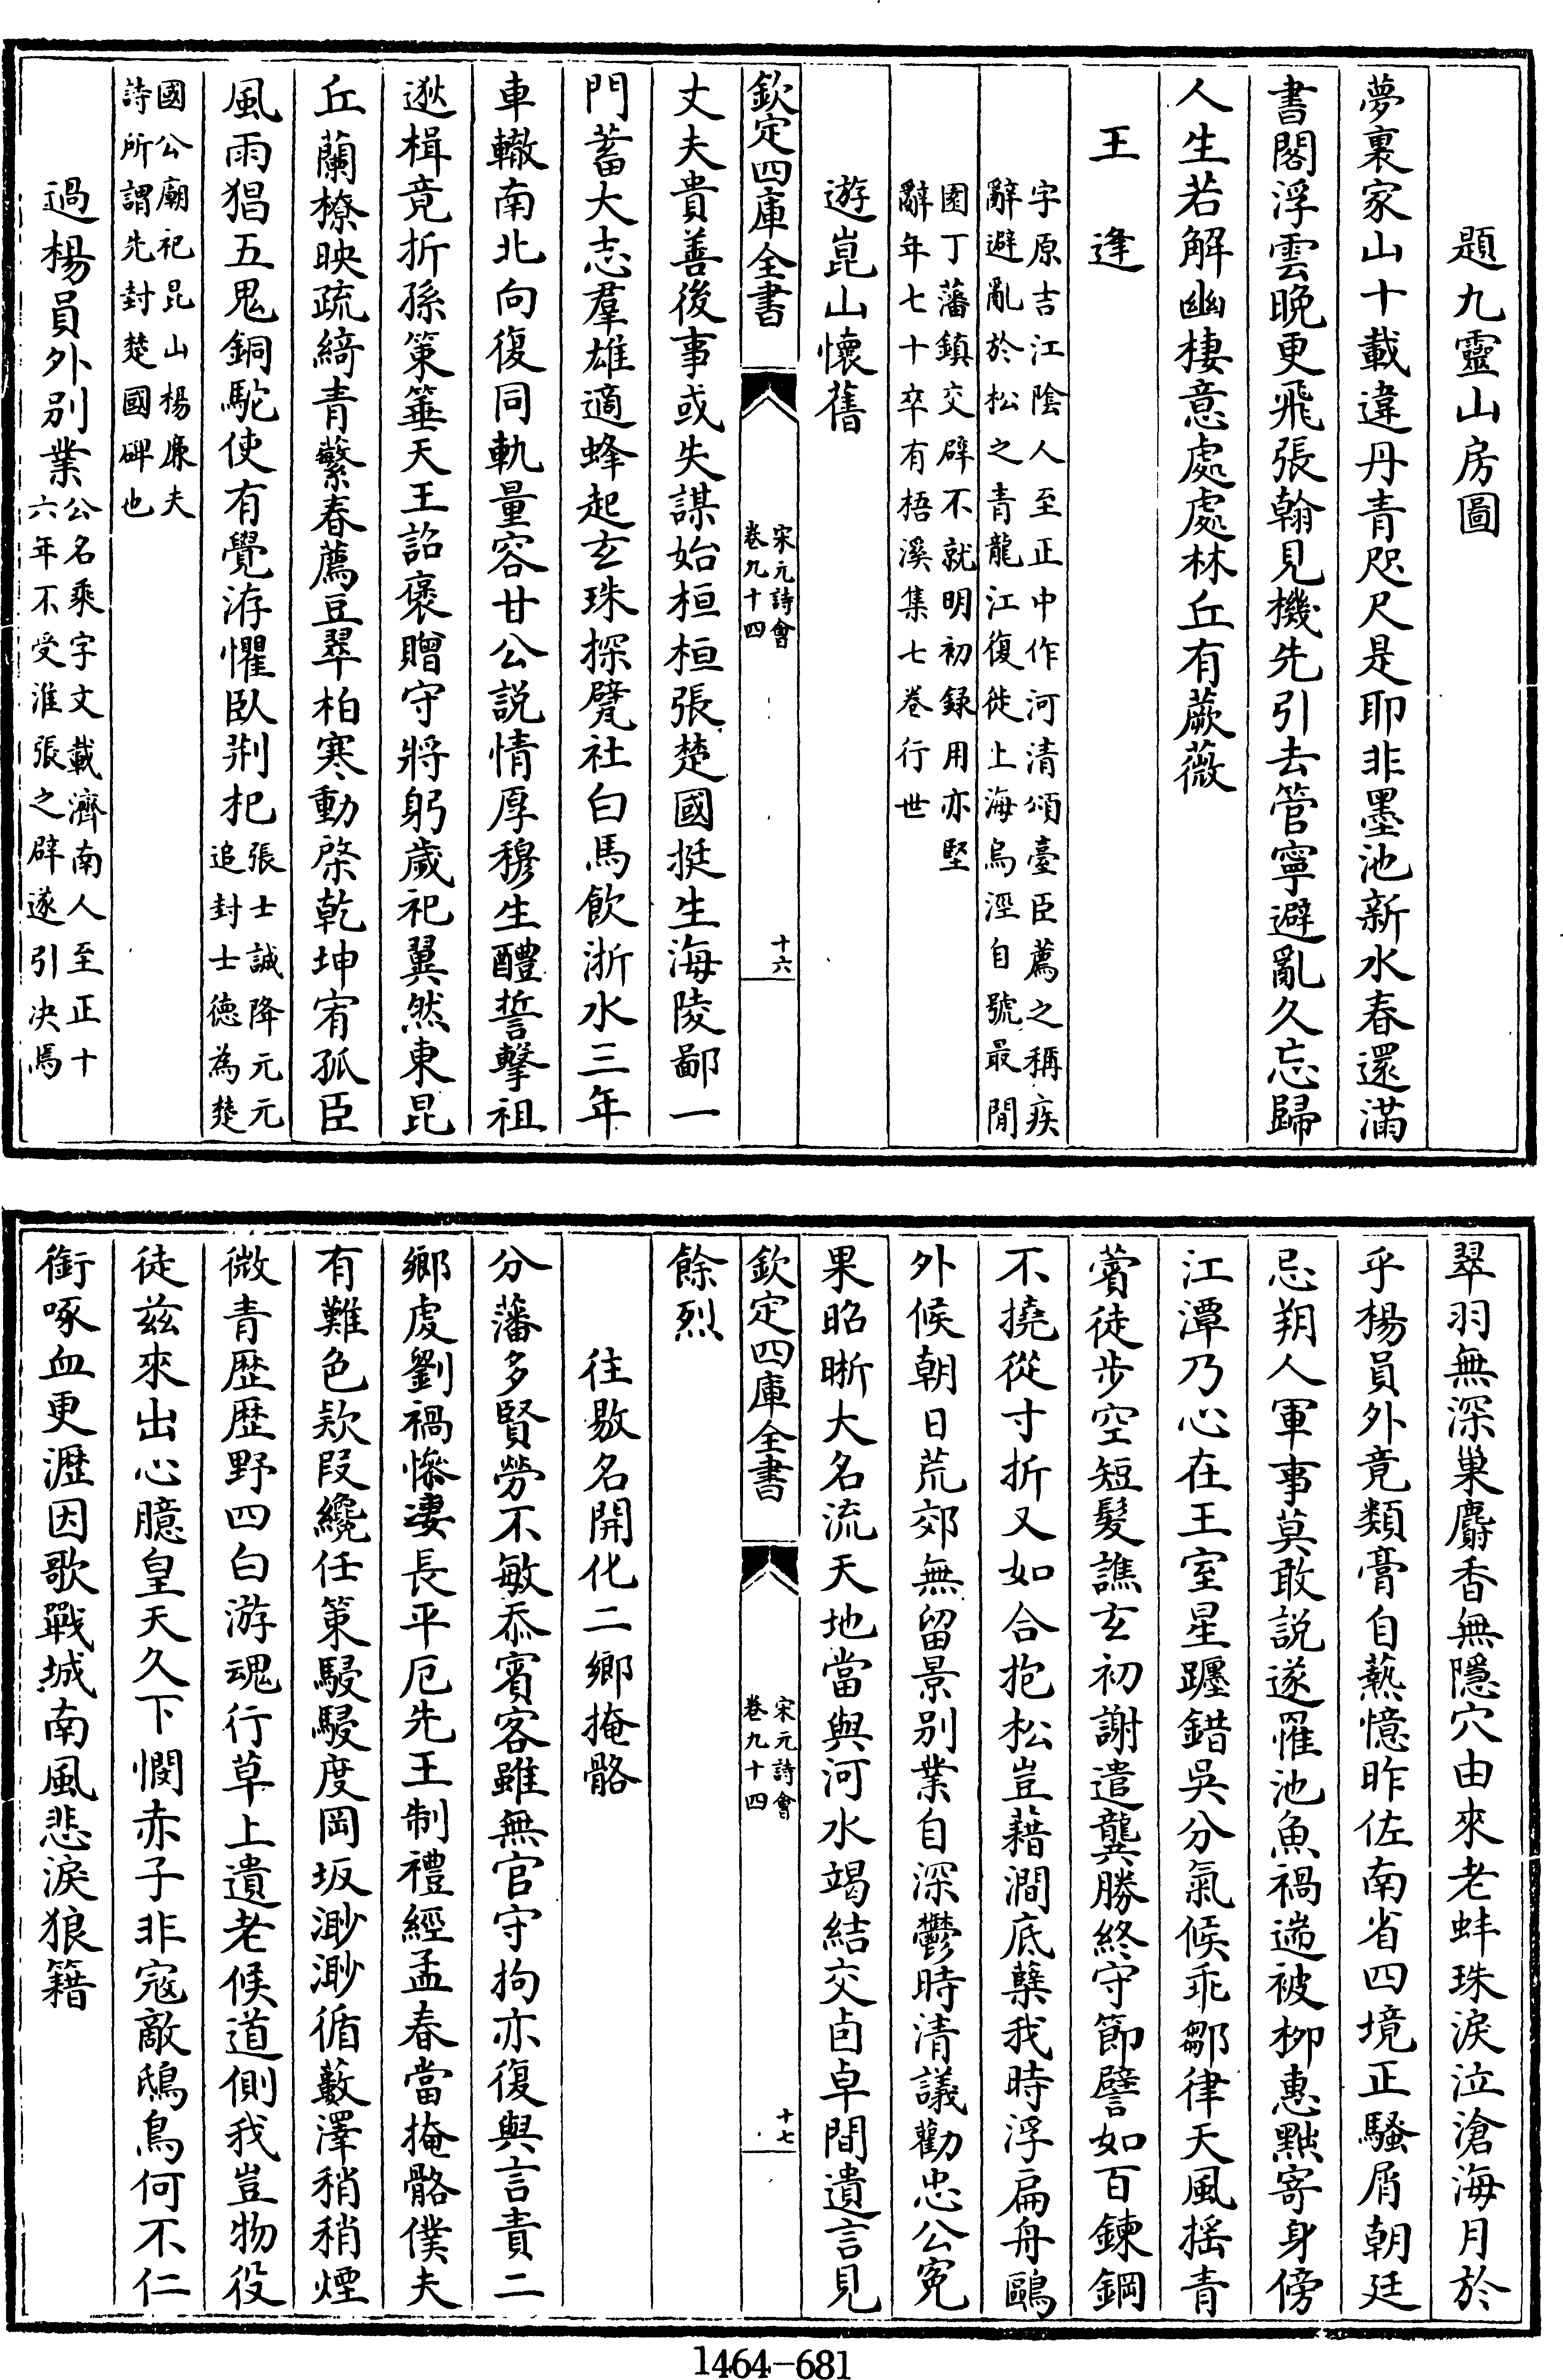 題九靈山房圖
夢裏家山十載違丹青咫尺是耶非墨池新水春還滿
書閣浮雲晚更飛張翰見機先引去管寧避亂久忘歸
人生若解幽棲意處處林丘有蕨薇
王逢
字原吉江陰人至正中作河清頌臺臣薦之稱疾
辭避亂於松之青龍江復徙上海烏涇自號最閒
園丁藩鎮交辟不就明初録用亦堅
辭年七十卒有梧溪集七卷行世
遊崑山懷舊
欽定四庫全書
宋元詩會
卷九十四
十六
丈夫貴善後事或失謀始桓桓張楚國挺生海陵鄙一
門蓄大志羣雄適蜂起玄珠探甓社白馬飲浙水三年
車轍南北向復同軌量容甘公説情厚穆生醴誓擊祖
逖楫竟折孫策箠天王詔褒贈守將躬歲祀翼然東昆
丘蘭橑映疏綺青蘩春薦豆翠柏寒動棨乾坤宥孤臣
風雨猖五鬼銅駝使有覺洊懼臥荆杞
張士誠降元元
追封士德為楚
國公廟祀昆山楊廉夫
詩所謂先封楚國碑也
過楊員外别業
公名乘字文載濟南人至正十
六年不受淮張之辟遂引决焉
翠羽無深巢麝香無隱穴由來老蚌珠淚泣滄海月於
乎楊員外竟類膏自爇憶昨佐南省四境正騷屑朝廷
忌朔人軍事莫敢説遂罹池魚禍遄被柳惠黜寄身傍
江潭乃心在王室星躔錯吳分氣候乖鄒律天風揺青
薲徒步空短髪譙玄初謝遣龔勝終守節譬如百鍊鋼
不撓從寸折又如合抱松豈藉澗底蘖我時浮扁舟鷗
外候朝日荒郊無留景别業自深鬱時清議勸忠公寃
果昭晰大名流天地當與河水竭結交卣卓間遺言見
欽定四庫全書
宋元詩會
卷九十四
十七
餘烈
往敭名開化二鄉掩骼
分藩多賢勞不敏忝賓客雖無官守拘亦復與言責二
鄉虔劉禍慘凄長平厄先王制禮經孟春當掩骼僕夫
有難色欵段纔任策駸駸度岡坂渺渺循藪澤稍稍煙
微青歷歷野四白游魂行草上遺老候道側我豈物役
徒兹來出心臆皇天久下憫赤子非寇敵鴟鳥何不仁
銜啄血更瀝因歌戰城南風悲淚狼籍
1464-681